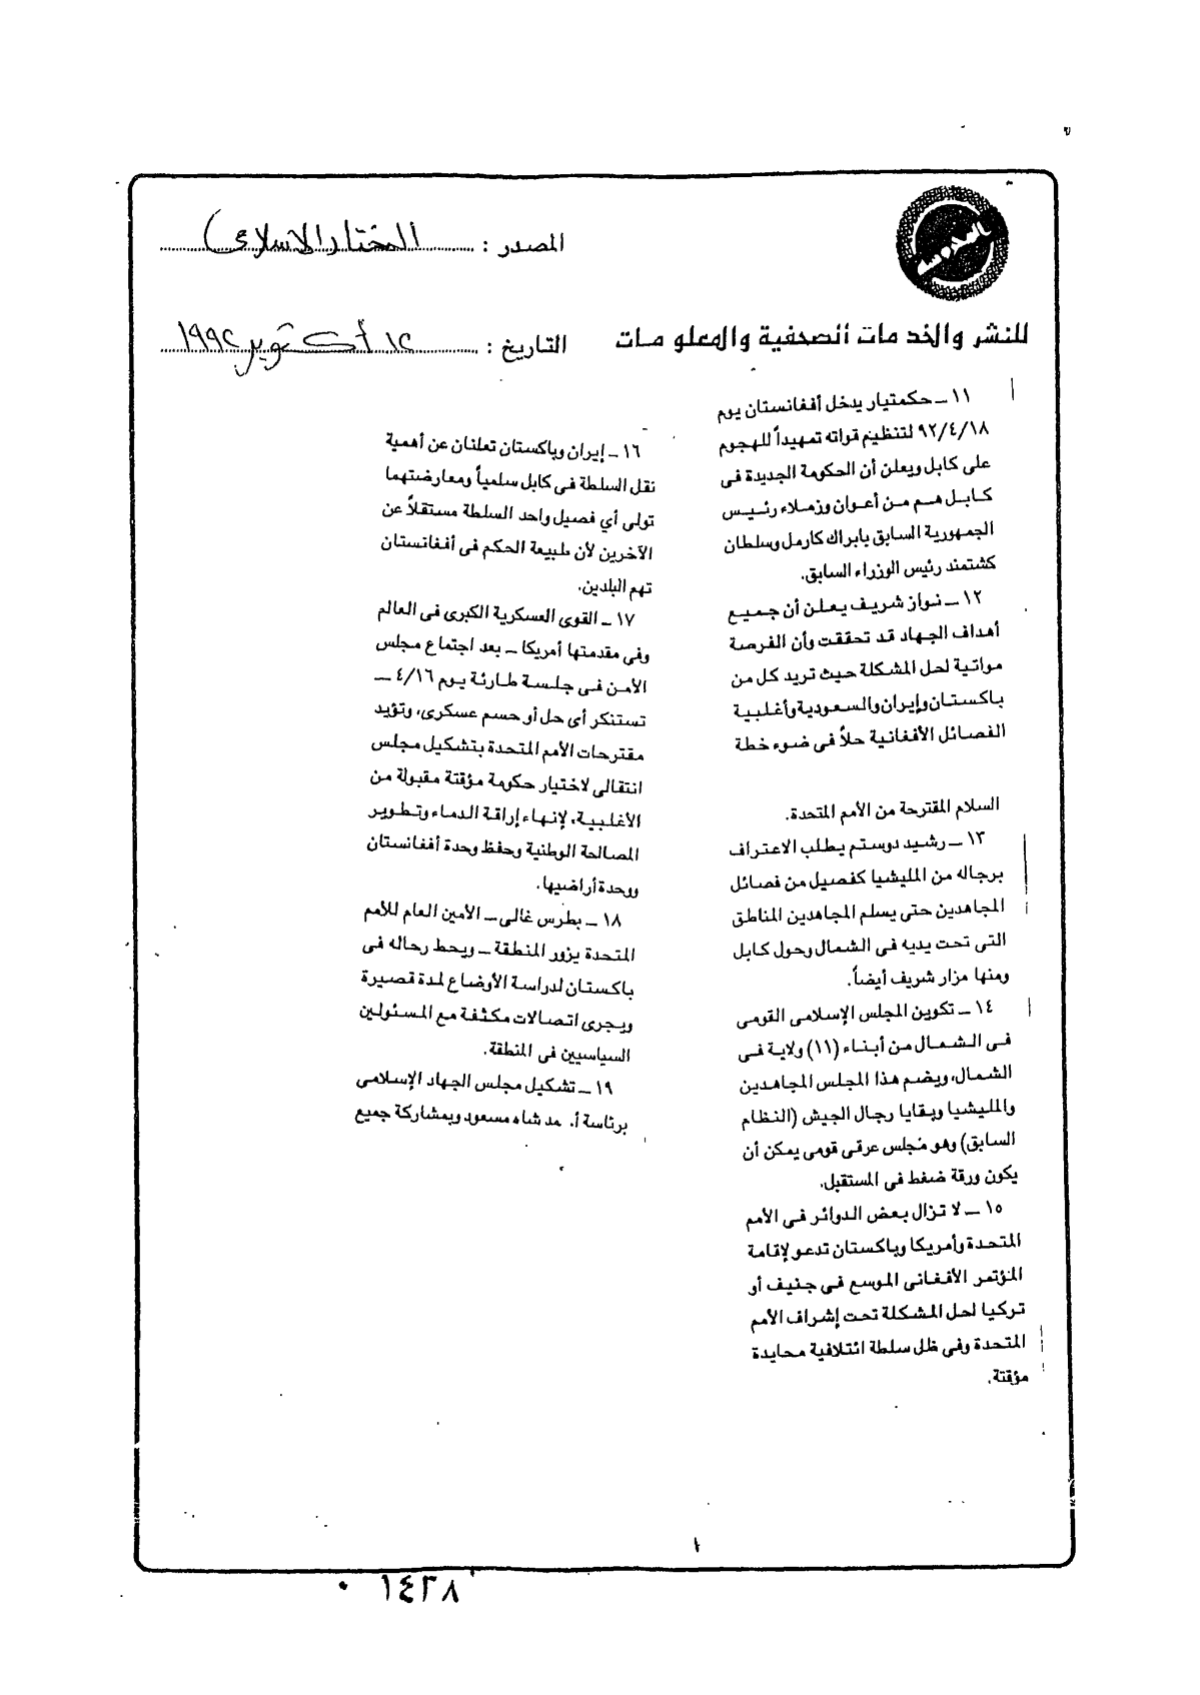 المصدر : المختار الاسلامى
للنشر والخدمات الصحفية والمعلومات
التاريخ : ١٢ أكتوبر ١٩٩٢
١١ ــ حكمتيار يدخل أفغانستان يوم
٩٢/٤/١٨ لتنظيم قواته تمهيداً للهجوم
على كابل ويعلن أن الحكومة الجديدة فى
كابل هم من أعوان وزملاء رئيس
الجمهورية السابق بابراك كارمل وسلطان
كشتمند رئيس الوزراء السابق.
١٢ ــ نواز شريف يعلن أن جميع
أهداف الجهاد قد تحققت وأن الفرصة
مواتية لحل المشكلة حيث تريد كل من
باكستان وإيران والسعودية وأغلبية
الفصائل الأفغانية حلاً فى ضوء خطة
السلام المقترحة من الأمم المتحدة.
١٣ ــ رشيد دوستم يطلب الاعتراف
برجاله من المليشيا كفصيل من فصائل
المجاهدين حتى يسلم المجاهدين المناطق
التى تحت يديه فى الشمال وحول كابل
ومنها مزار شريف أيضاً.
١٤ ــ تكوين المجلس الإسلامى القومى
فى الشمال من أبناء (١١) ولاية فى
الشمال، ويضم هذا المجلس المجاهدين
والمليشيا وبقايا رجال الجيش (النظام
السابق) وهو مجلس عرقى قومى يمكن أن
يكون ورقة ضغط فى المستقبل.
١٥ ــ لا تزال بعض الدوائر فى الأمم
المتحدة وأمريكا وباكستان تدعو لإقامة
المؤتمر الأفغانى الموسع فى جنيف أو
تركيا لحل المشكلة تحت إشراف الأمم
المتحدة وفى ظل سلطة ائتلافية محايدة
مؤقتة.
١٦ ــ إيران وباكستان تعلنان عن أهمية
نقل السلطة فى كابل سلمياً ومعارضتهما
تولى أي فصيل واحد السلطة مستقلاً عن
الآخرين لأن طبيعة الحكم فى أفغانستان
تهم البلدين.
١٧ ــ القوى العسكرية الكبرى فى العالم
وفى مقدمتها أمريكا ــ بعد اجتماع مجلس
الأمن فى جلسة طارئة يوم ٤/١٦ ــ
تستنكر أى حل أو حسم عسكرى، وتؤيد
مقترحات الأمم المتحدة بتشكيل مجلس
انتقالى لاختيار حكومة مؤقتة مقبولة من
الأغلبية، لإنهاء إراقة الدماء وتطوير
المصالحة الوطنية وحفظ وحدة أفغانستان
ووحدة أراضيها.
١٨ ــ بطرس غالى ــ الأمين العام للأمم
المتحدة يزور المنطقة ــ ويحط رحاله فى
باكستان لدراسة الأوضاع لمدة قصيرة
ويجرى اتصالات مكثفة مع المسئولين
السياسيين فى المنطقة.
١٩ ــ تشكيل مجلس الجهاد الإسلامى
برئاسة أ. مد شاه مسعود وبمشاركة جميع
١
١٤٣٨